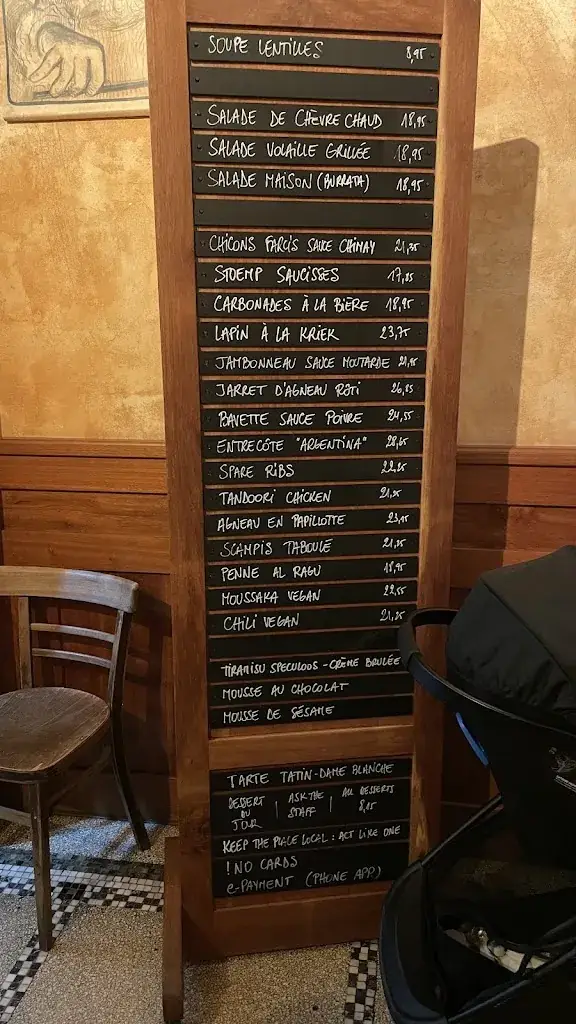 SOUPE LENTILLES 8,95
SALADE DE CHÈVRE CHAUD 18,95
SALADE VOLAILLE GRILLÉE 18,95
SALADE MAISON (BURRATA) 18,95
CHICONS FARCIS SAUCE CHIMAY 21,35
STOEMP SAUCISSES 17,85
CARBONADES À LA BIÈRE 18,95
LAPIN À LA KRIEK 23,75
JAMBONNEAU SAUCE MOUTARDE 21,95
JARRET D'AGNEAU RÔTI 26,85
BAVETTE SAUCE POIVRE 24,55
ENTRECÔTE "ARGENTINA" 28,65
SPARE RIBS 22,85
TANDOORI CHICKEN 21,25
AGNEAU EN PAPILLOTTE 23,95
SCAMPIS TABOULÉ 21,25
PENNE AL RAGU 18,95
MOUSSAKA VEGAN 22,55
CHILI VEGAN 21,25
TIRAMISU SPECULOOS - CRÈME BRULÉE
MOUSSE AU CHOCOLAT
MOUSSE DE SÉSAME
TARTE TATIN - DAME BLANCHE
DESSERT DU JOUR | ASK THE STAFF | ALL DESSERTS 8,15
KEEP THE PLACE LOCAL : ACT LIKE ONE
! NO CARDS
e-PAYMENT (PHONE APP)